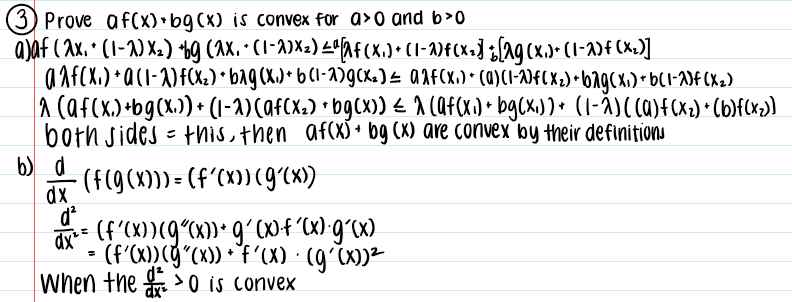 ③ Prove af(x)+bg(x) is convex for a>0 and b>0
a) af(λx₁+(1-λ)x₂)+bg(λx₁+(1-λ)x₂)≤a[λf(x₁)+(1-λ)f(x₂)]+b[λg(x₁)+(1-λ)f(x₂)]
aλf(x₁)+a(1-λ)f(x₂)+bλg(x₁)+b(1-λ)g(x₂)≤ aλf(x₁)+(a)(1-λ)f(x₂)+bλg(x₁)+b(1-λ)f(x₂)
λ(af(x₁)+bg(x₁))+(1-λ)(af(x₂)+bg(x)) ≤ λ(af(x₁)+bg(x₁))+ (1-λ)((a)f(x₂)+(b)f(x₂))
both sides = this, then af(x)+bg(x) are convex by their definitions
b) d/dx (f(g(x)))=(f'(x))(g'(x))
d²/dx²= (f'(x))(g"(x))+g'(x)·f'(x)·g'(x)
= (f'(x))(g"(x))+f'(x)·(g'(x))²
When the d²/dx² >0 is convex